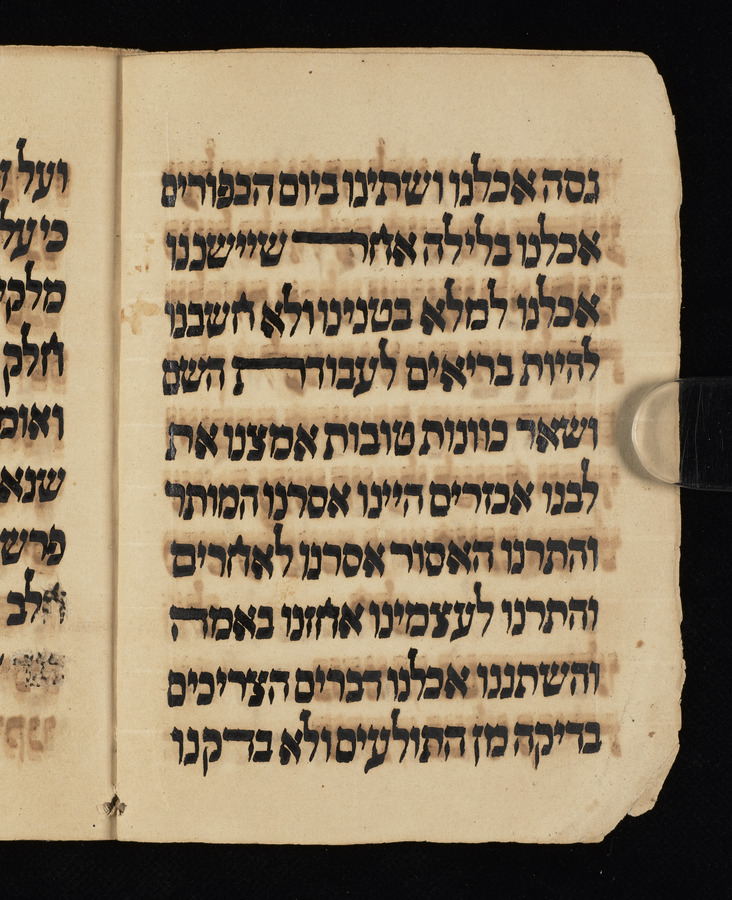 גסה אכלנו ושתינו ביום הכפורים
אכלנו בלילה אחר שיישבנו
אכלנו למלא בטנינו ולא חשבנו
להיות בריאים לעבודת השם
ושאר כוונות טובות אמצנו את
לבנו אכזרים היינו אסרנו המותר
והתרנו האסור אסרנו לאחרים
והתרנו לעצמינו אחזנו באמה
והשתננו אכלנו דברים הצריכים
בדיקה מן התולעים ולא בדקנו
ועל
כי על
חלק
שנא
פרש